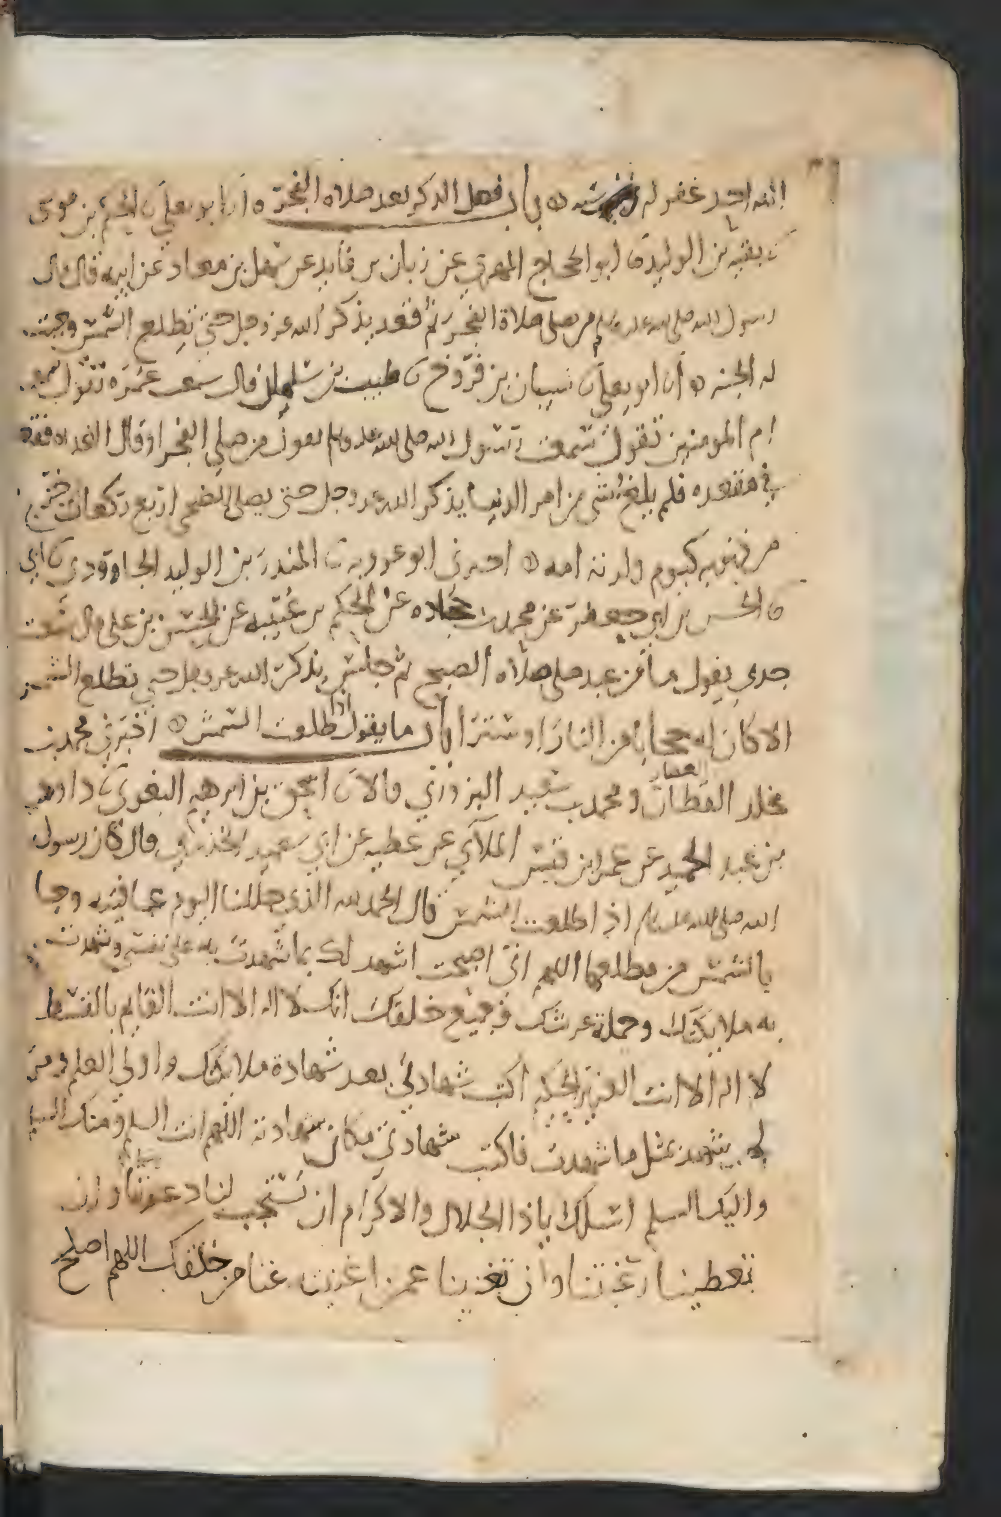 الله احد غفر له ه باب فضل الذكر بعد صلاة الفجر ه انا ابو يعلى ن الحكم بن موسى
ن بقيه بن الوليد ن ابو الحجاج المهري عن زبان بن فايد عن سهل بن معاد عن ابيه قال قال
رسول الله صلى الله عليه وسلم من صلى صلاة الفجر ثم قعد يذكر الله عز وجل حتى تطلع الشمس وجبت
له الجنة ه انا ابو يعلى ن شيبان بن فروخ ن طيب بن سلمان قال سمعت عمرة تقول سمعت
ام المومنين تقول سمعت رسول الله صلى الله عليه وسلم يقول من صلى الفجر او قال الغداه فقعد
في مقعده فلم يلغ بشي من امر الدنيا يذكر الله عز وجل حتى يصلى الضحى اربع ركعات خرج
من ذنوبه كيوم ولدته امه ه اخبرني ابو عروبه ن المنذر بن الوليد الجارودي ن ابي
ن الحسن بن ابي جعفر عن محمد بن جحاده عن الحكم بن عتيبه عن الحسن بن على قال سمعت
جدي يقول ما من عبد صلى صلاة الصبح ثم جلس يذكر الله عز وجل حتى تطلع الشمس
الا كان له حجابا من النار او سترا باب ما يقول اذا طلعت الشمس ه اخبرني محمد بن
مخلد العطار و محمد بن سعيد البزوري قالا ن اسحق بن ابرهيم البغوي ن داود
بن عبد الحميد عن عمرو بن قيس الملآي عن عطيه عن ابي سعيد الخدري قال كان رسول
الله صلى الله عليه وسلم اذا طلعت الشمس قال الحمد لله الذي جللنا اليوم عافيته وجا
بالشمس من مطلعها اللهم اني اصبحت اشهد لك بما شهدت به على نفسك وشهدت
به ملايكتك وحملة عرشك وجميع خلقك انك لا اله الا انت القايم بالقسط
لا اله الا انت العزيز الحكيم اكتب شهادتي بعد شهادة ملايكتك واولي العلم ومن
لم يشهد بمثل ما شهدت فاكتب شهادتي مكان شهادته اللهم انت السلم ومنك السلم
واليك السلم اسلك ياذا الجلال والاكرام ان تستجيب لنا دعوتنا وان
تعطينا رغبتنا وان تغنينا عمن اغنيته عنا من خلقك اللهم اصلح